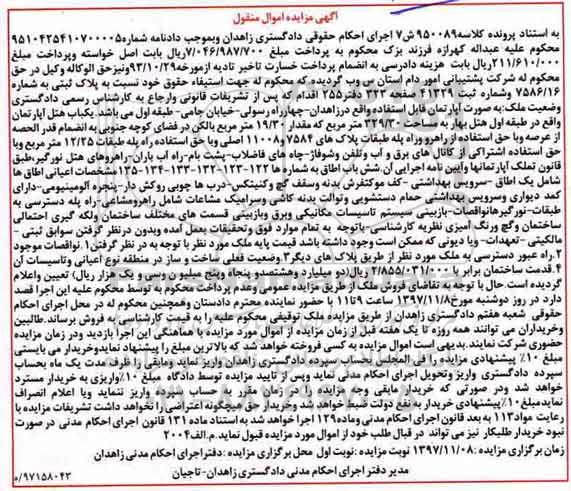 آگهی مزایده اموال منقول
به استناد پرونده کلاسه ۹۵۰۰۸۹ش۷ اجرای احکام حقوقی دادگستری زاهدان وبموجب دادنامه شماره ۹۵۱۰۴۲۵۴۱۰۷۰۰۰۰۵
محکوم علیه عبداله گهرازه فرزند بزک محکوم به پرداخت مبلغ ۷/۰۴۶/۹۸۷/۷۰۰ریال بابت اصل خواسته وپرداخت مبلغ
۲۱۱/۶۱۰/۰۰۰ریال بابت هزینه دادرسی به انضمام پرداخت خسارت تاخیر تادیه ازمورخه۹۳/۱۰/۲۹ونیزحق الوکاله وکیل در حق
محکوم له شرکت پشتیبانی امور دام استان س وب گردیده که محکوم له جهت استیفاء حقوق خود نسبت به پلاک ثبتی به شماره
۷۵۸۶/۱۶ وشماره ثبت ۴۱۳۲۹ صفحه ۳۲۳ دفتر۲۵۵ اقدام که پس از تشریفات قانونی وارجاع به کارشناس رسمی دادگستری
وضعیت ملک:به صورت آپارتمان قابل استفاده واقع درزاهدان-چهارراه رسولی-خیابان جامی- طبقه اول می باشد.یکباب هتل آپارتمان
واقع در طبقه اول هتل بهاربه مساحت ۳۲۹/۳۰ متر مربع که مقدار ۱۹/۳۰ متر مربع بالکن در فضای کوچه جنوبی به انضمام قدر الحصه
از عرصه وبا حق استفاده از راهرو وراه پله طبقات پلاک های ۷۵۸۴و۱۱۰۰۸ اصلی وبا حق استفاده راه پله طبقات ۱۲/۲۵ متر مربع وبا
حق استفاده اشتراکی از کانال های برق و آب وتلفن وشوفاژ-چاه های فاضلاب-پشت بام-راه آب باران-راهروهای هتل نورگیر،طبق
قانون تملک آپارتمانها وآیین نامه اجرایی آن.شش باب اطاق به شماره ها ۱۲۲-۱۲۳-۱۳۲-۱۳۳-۱۳۴-۱۳۵مشخصات اعیانی اطاق ها
شامل یک اطاق -سرویس بهداشتی -کف موکتفرش بدنه وسقف گچ وکنیتکس-درب ها چوبی روکش دار-پنجره آلومینیومی-دارای
کمد دیواری وسرویس بهداشتی حمام دستشویی وتوالت بدنه کاشی وسرامیک مشاعات شامل راهرومشاعی-راه پله دسترسی به
طبقات-نورگیرهانواقصات-بازبینی سیستم تاسیسات مکانیکی وبرق وبازبینی قسمت های مختلف ساختمان ولکه گیری احتمالی
ساختمان وگچ ورنگ آمیزی نظریه کارشناسی-باتوجه به تمام موارد فوق وتحقیقات بعمل آمده وبدون درنظر گرفتن سوابق ثبتی -
مالکیتی -تعهدات- ویا دیونی که ممکن است وجود داشته باشد قیمت پایه ملک مورد نظر با توجه به در نظر گرفتن۱.نواقصات موجود
۲.راه عبور دسترسی به ملک مورد نظر از طریق پلاک های دیگر۳.وضعیت فعلی ساخت و ساز در منطقه نوع اعیانی وتاسیسات آن
۴.قدمت ساختمان برابر با ۲/۸۵۵/۰۳۱/۰۰۰ ریال(دو میلیارد وهشتصدو پنجاه وپنج میلیون وسی و یک هزار ریال) تعیین واعلام
گردیده است.حال با توجه به تقاضای فروش ملک از طریق مزایده عمومی وعدم پرداخت محکوم به توسط محکوم علیه این اجرا قصد
دارد در روز دوشنبه مورخ۱۳۹۷/۱۱/۸ ساعت ۹تا۱۱ با حضور نماینده محترم دادستان وهمچنین محکوم له در محل اجرای احکام
حقوقی شعبه هفتم دادگستری زاهدان از طریق مزایده ملک توقیفی محکوم علیه را به قیمت کارشناسی به فروش برساند.طالبین
وخریداران می توانند همه روزه تا یک هفته قبل از زمان مزایده از اموال مورد مزایده با هماهنگی این اجرا بازدید ودر زمان مزایده
حضوری شرکت نمایند.بدیهی است اموال مزایده به کسی فروخته خواهد شد که بالاترین مبلغ را پیشنهاد نمایدوخریدار می بایستی
مبلغ ۱۰٪ پیشنهادی مزایده را فی المجلس بحساب سپرده دادگستری زاهدان واریز نماید ومابقی را ظرف مدت یک ماه بحساب
سپرده دادگستری واریز وتحویل اجرای احکام مدنی نماید وپس از تایید مزایده توسط دادگاه مبلغ ۱۰٪واریزی به خریدار مسترد
خواهد شد ودر صورتی که خریدار مابقی وجه مزایده را در زمان مقرر به حساب سپرده واریز ننماید ویا اعلام انصراف
نمایدمبلغ۱۰٪پیشنهادی خریدار به نفع دولت ضبط خواهدشد وخریدار حق هیچگونه اعتراضی را نخواهد داشت تشریفات مزایده با
رعایت مواد۱۱۳ به بعد قانون اجرای احکام مدنی وماده۱۲۹ اجرا خواهد شد به استناد ماده ۱۳۱ قانون اجرای احکام مدنی در صورت
نبود خریدار طلبکار نیز می تواند در قبال طلب خود از اموال مورد مزایده قبول نماید.م.الف۲۰۰۴
زمان برگزاری مزایده :۱۳۹۷/۱۱/۰۸ نوبت مزایده:نوبت اول محل برگزاری مزایده :دفتراجرای احکام مدنی زاهدان
مدیر دفتر اجرای احکام مدنی دادگستری زاهدان-تاجیان
۰/۹۷۱۵۸۰۴۳